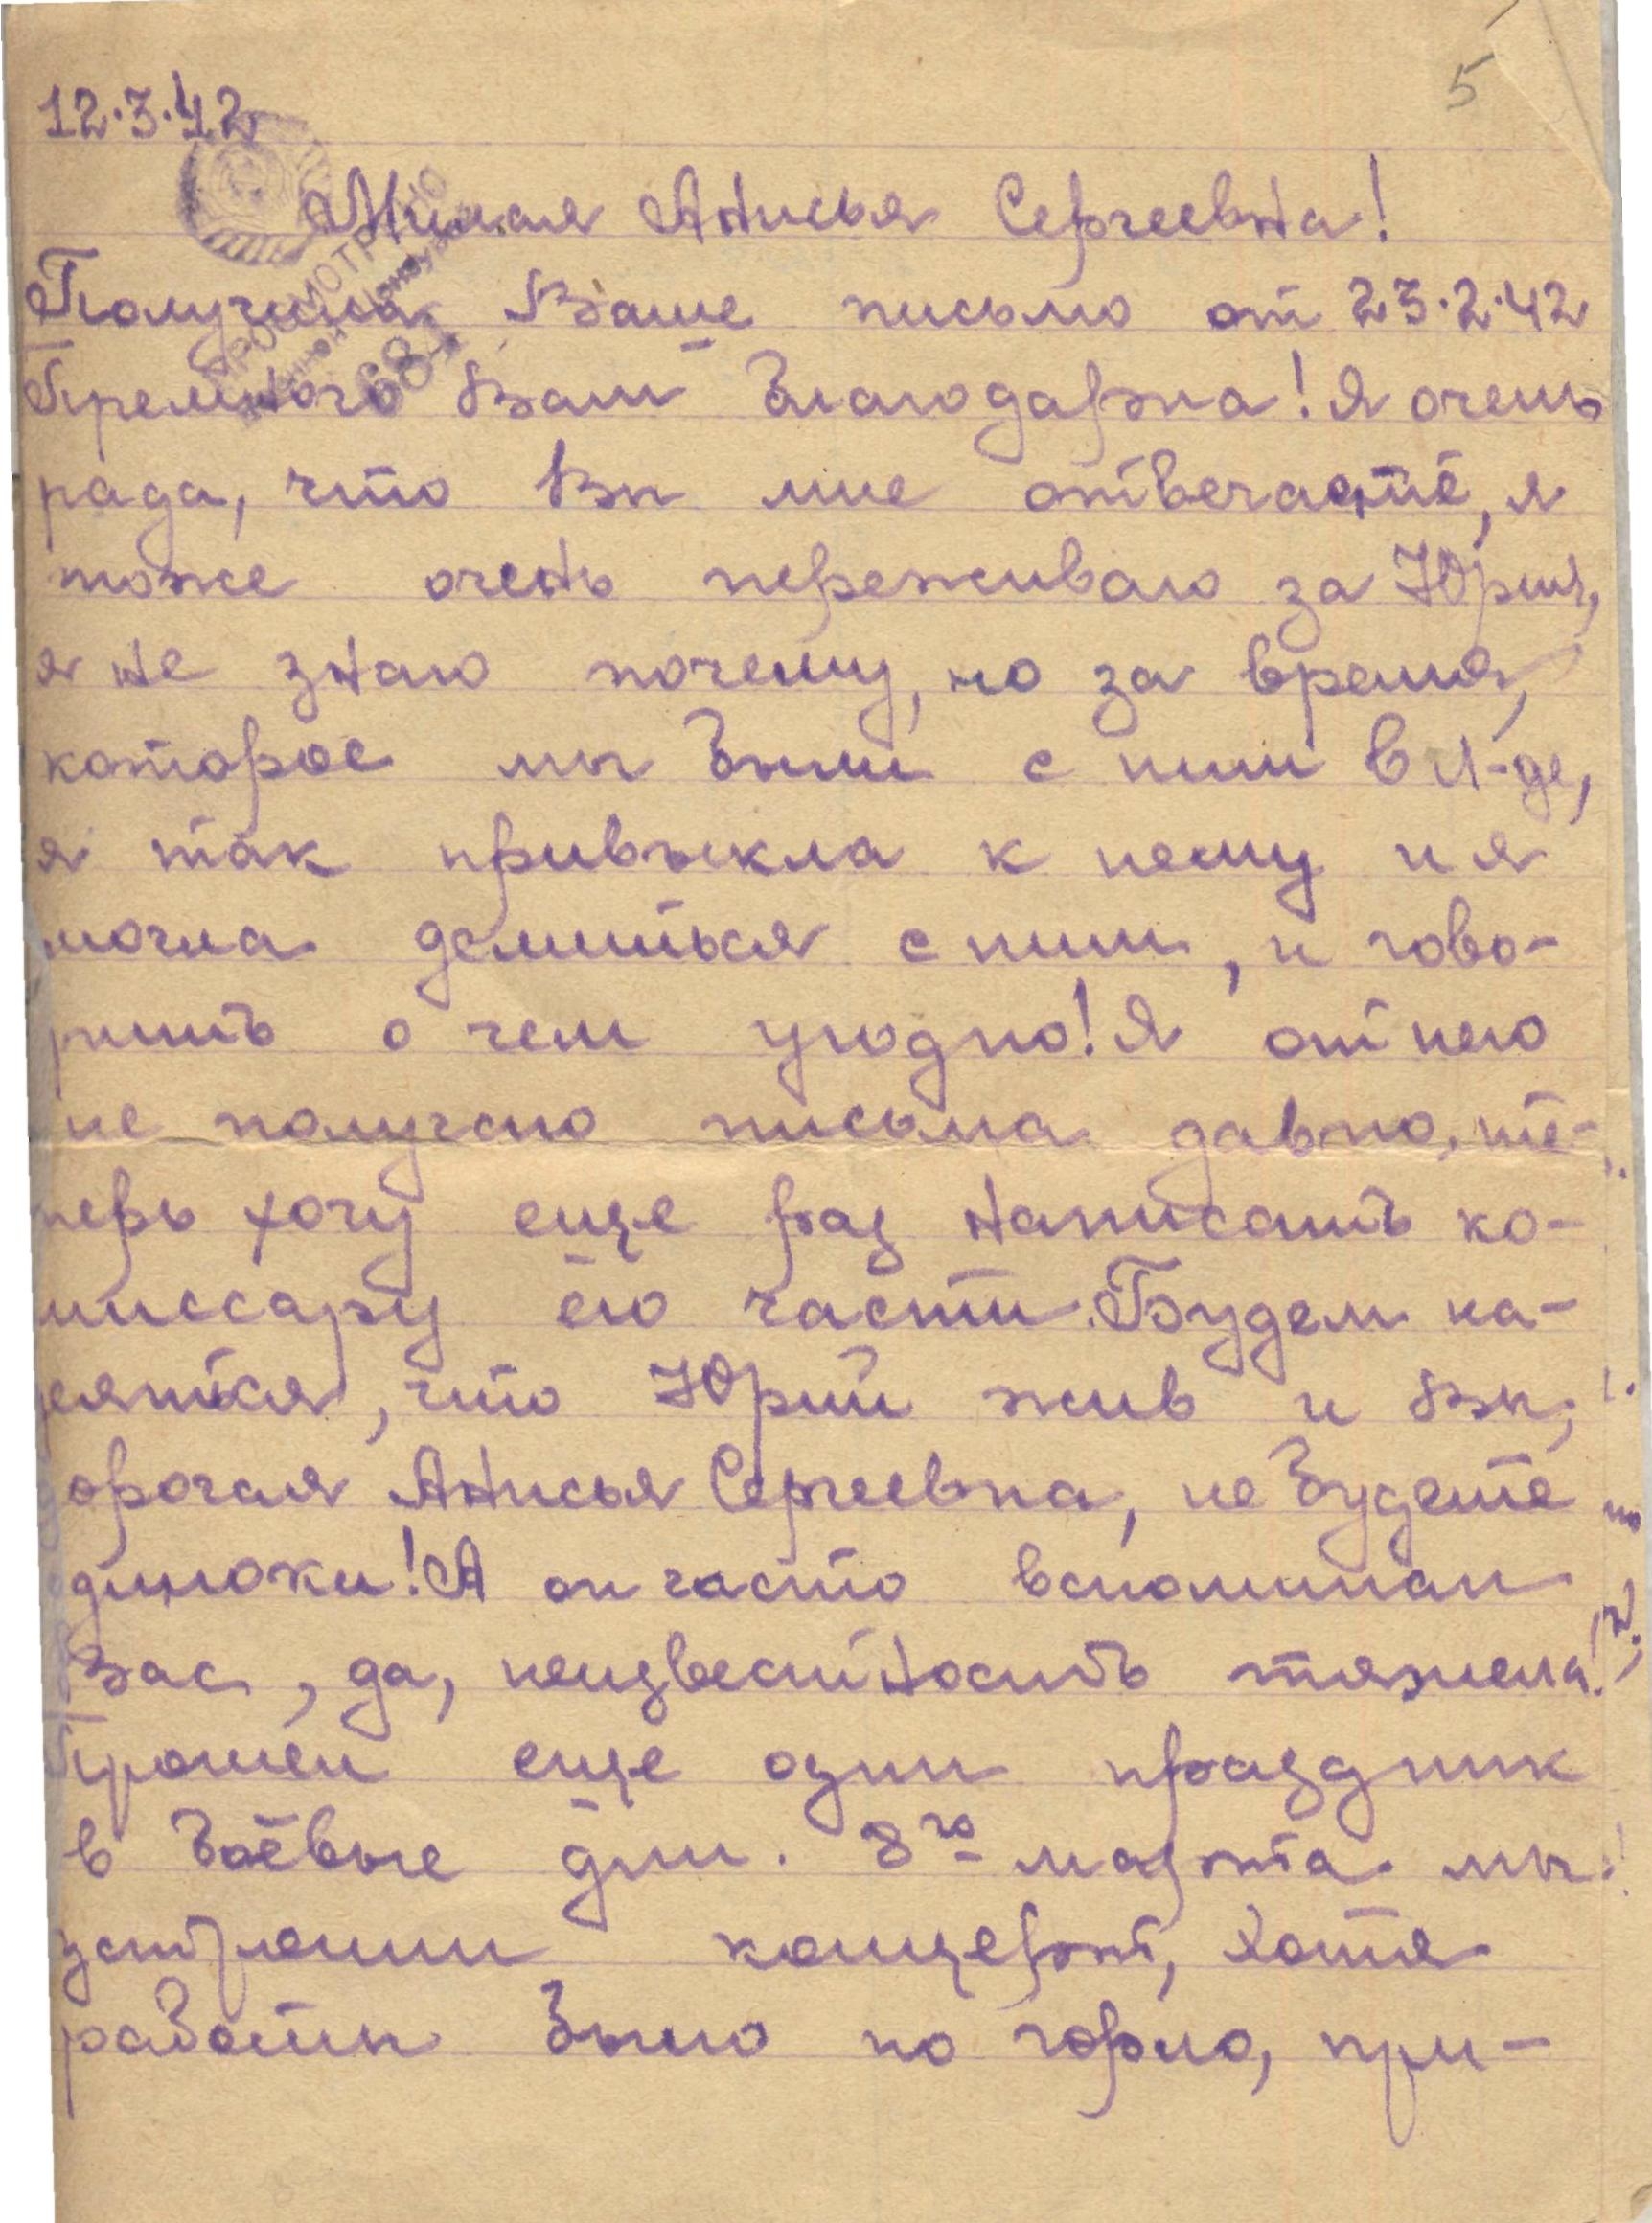 5
12.3.42
Милая Анисья Сергеевна!
Получила Ваше письмо от 23.2.42
Премного Вам благодарна! Я очень
рада, что Вы мне отвечаете, я
тоже очень переживаю за Юрия,
я не знаю почему, но за время,
которое мы были с ним в Л-де,
я так привыкла к нему и я
могла делиться с ним, и гово-
рить о чем угодно! Я от него
не получаю письма давно, те-
перь хочу еще раз написать ко-
миссару его части. Будем на-
деяться, что Юрий жив и Вы,
дорогая Анисья Сергеевна, не будете
одиноки! А он часто вспоминал
Вас, да, неизвестность тяжела!
Прошел еще один праздник
в боевые дни. 8го марта мы
устроили концерт, хотя
работы было по горло, при-